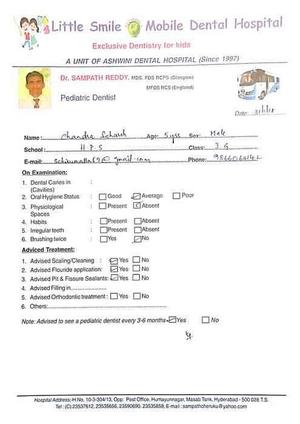 Little Smile Mobile Dental Hospital
Exclusive Dentistry for kids
A UNIT OF ASHWINI DENTAL HOSPITAL (Since 1997)
Dr. SAMPATH REDDY, MDS. FDS RCPS (Glasgow)
MFDS RCS (England)
Pediatric Dentist
Date:
Name: Chandra Age: 5 yrs Sex: Male
School: H.P.S Class: J G
E-mail: @gmail.com Phone:
On Examination:
1. Dental Caries in :
(Cavities)
2. Oral Hygiene Status : Good Average Poor
3. Physiological : Present Absent
Spaces
4. Habits : Present Absent
5. Irregular teeth : Present Absent
6. Brushing twice : Yes No
Adviced Treatment:
1. Advised Scaling/Cleaning : Yes No
2. Advised Flouride application: Yes No
3. Advised Pit & Fissure Sealants: Yes No
4. Advised Filling in
5. Advised Orthodontic treatment : Yes No
6. Others:
Note: Advised to see a pediatric dentist every 3-6 months Yes No
Hospital Address: H.No. 10-3-304/13, Opp: Post Office, Humayunnagar, Masab Tank, Hyderabad - 500 028 T.S.
Tel : (C) 23537612, 23535658, 23590690, 23535858, E-mail : sampathcheruku@yahoo.com